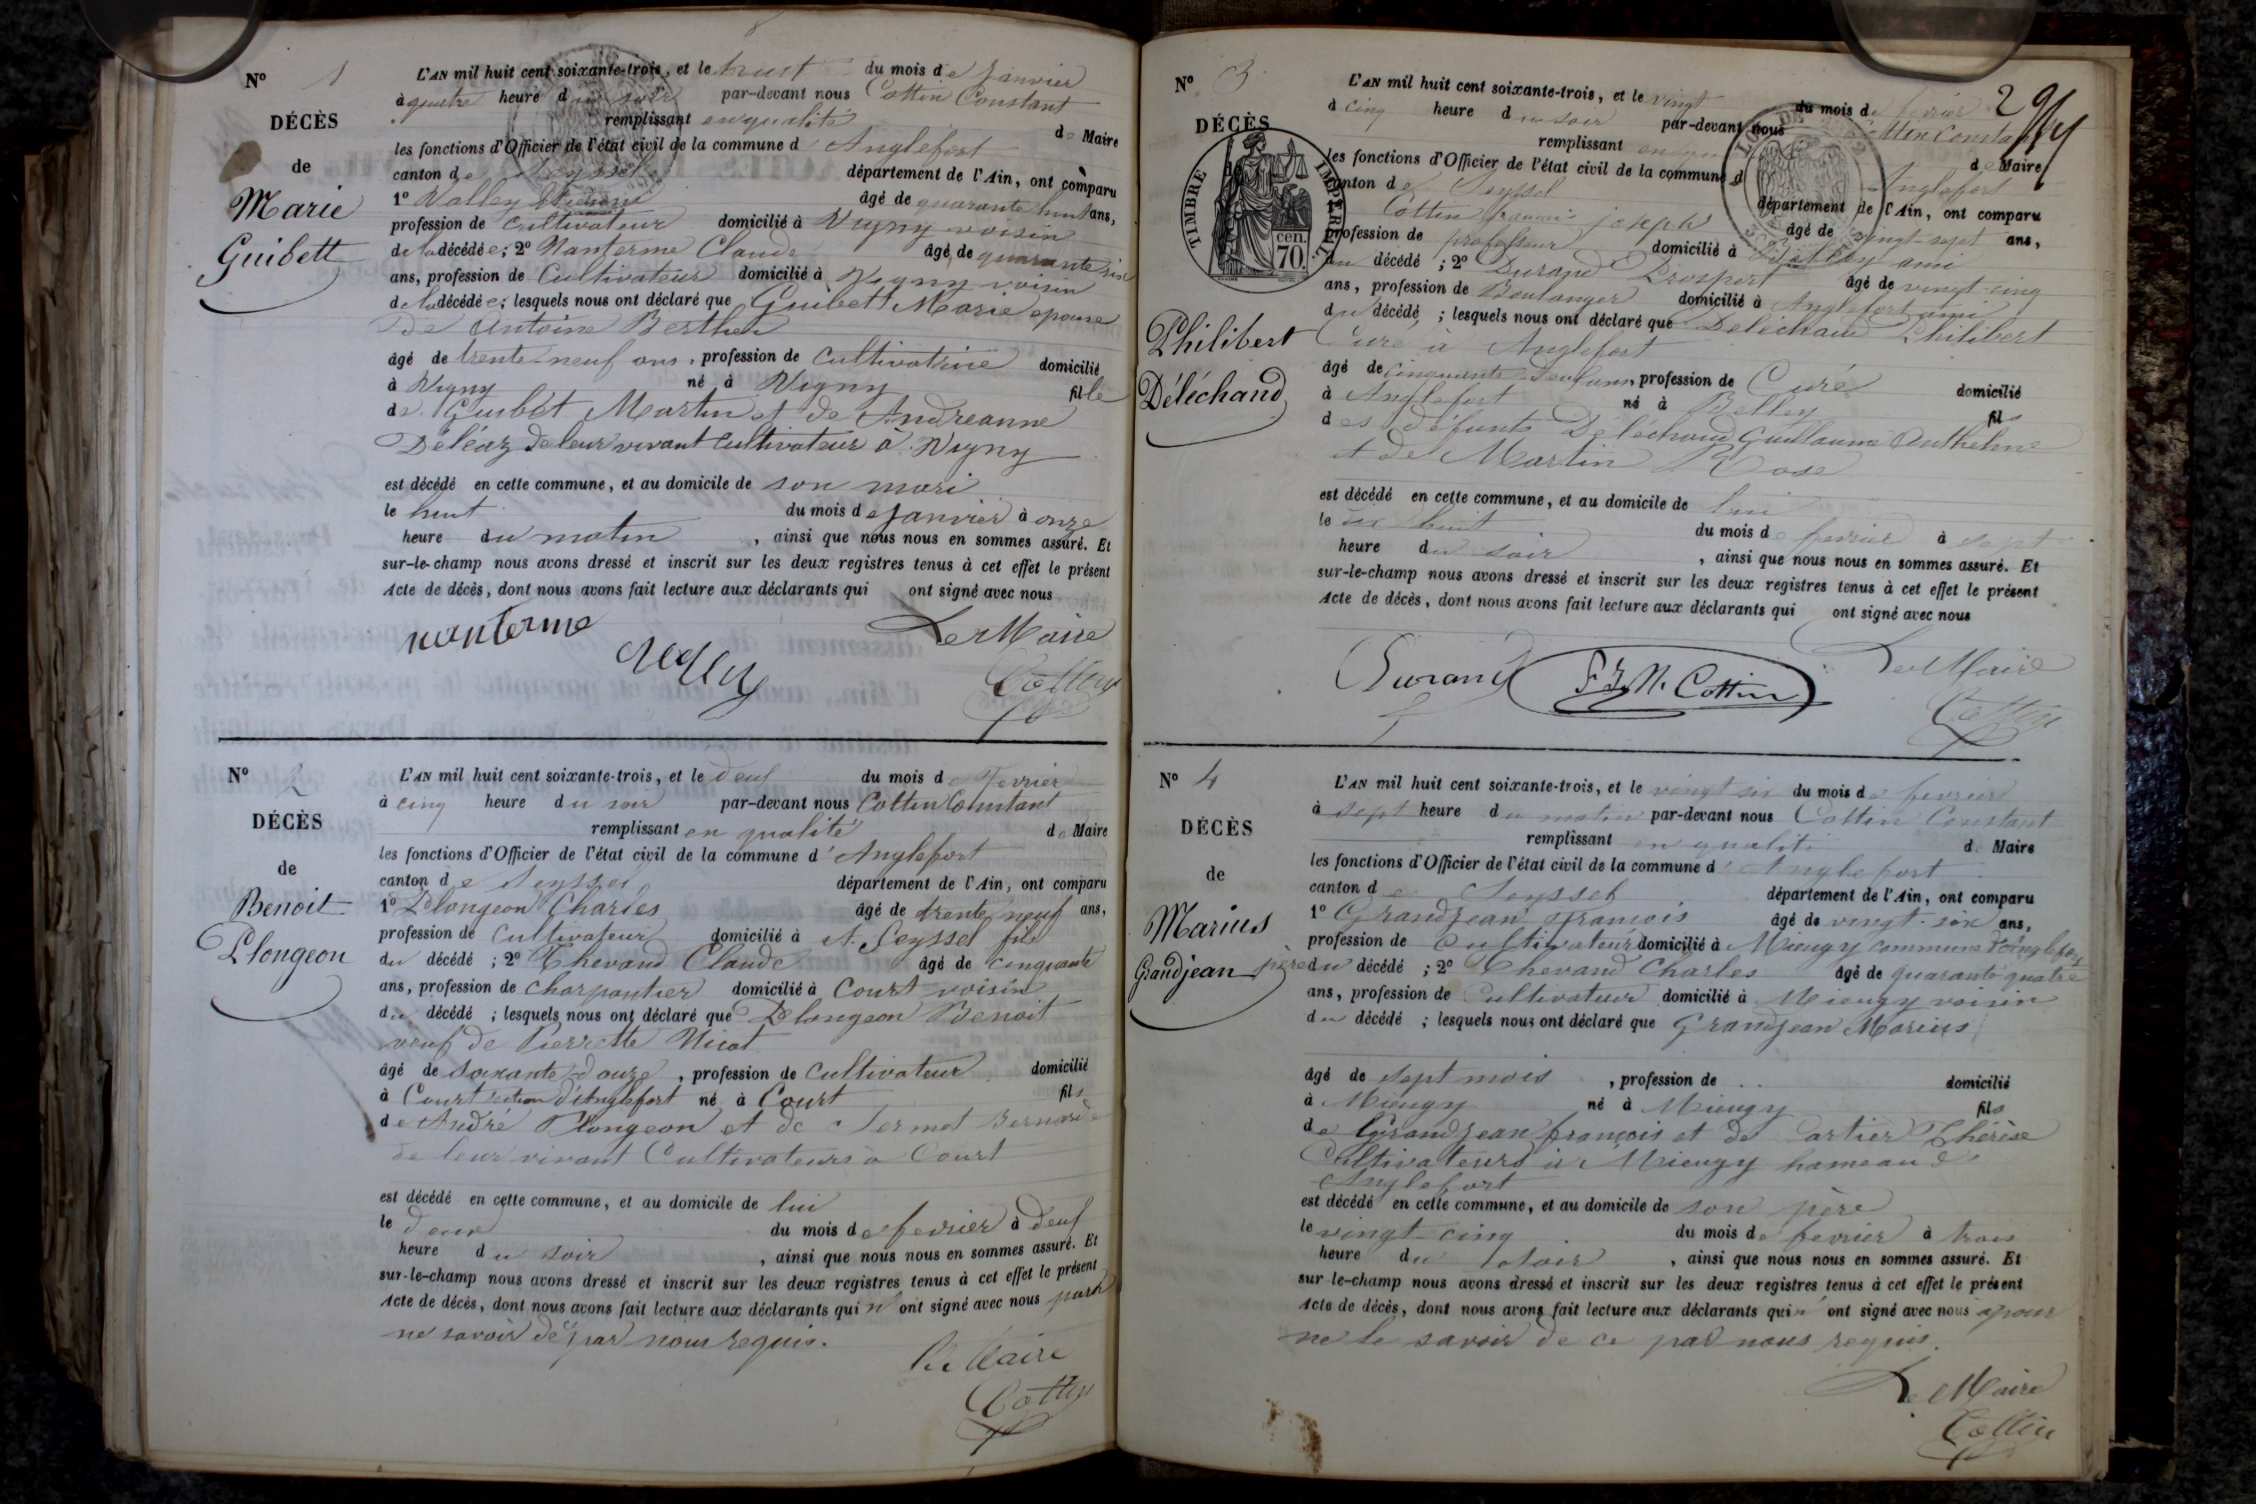 N° 1
DÉCÈS
de
Marie
Guibett
L'AN mil huit cent soixante-trois, et le huit du mois de Janvier
à quatre heure du soir par-devant nous Cottin Constant
remplissant en qualité de Maire
les fonctions d'Officier de l'état civil de la commune d'Anglefort
canton de Seyssel département de l'Ain, ont comparu
1° âgé de quarante huit ans,
profession de Cultivateur domicilié à Vigny voisin
de la décédée; 2° Nanterme Claude âgé de quarante six
ans, profession de Cultivateur domicilié à Vigny voisin
de la décédée; lesquels nous ont déclaré que Guibett Marie epouse
De Antoine Berthet
âgé de trente-neuf ans, profession de Cultivatrice domicilié
à Vigny né à Vigny fille
de Guibet Martin et de Andreanne
Déléaz de leur vivant Cultivateur à Vigny
est décédé en cette commune, et au domicile de son mari
le huit du mois de Janvier à onze
heure du matin, ainsi que nous nous en sommes assuré. Et
sur-le-champ nous avons dressé et inscrit sur les deux registres tenus à cet effet le présent
Acte de décès, dont nous avons fait lecture aux déclarants qui ont signé avec nous
nanterme Le Maire
Cottin
N° 2
DÉCÈS
de
Benoit
Plongeon
L'AN mil huit cent soixante-trois, et le deux du mois de Fevrier
à cinq heure du soir par-devant nous Cottin Constant
remplissant en qualité de Maire
les fonctions d'Officier de l'état civil de la commune d'Anglefort
canton de Seyssel département de l'Ain, ont comparu
1° Plongeon Charles âgé de trente neuf ans,
profession de Cultivateur domicilié à Seyssel fils
du décédé; 2° Chevand Claude âgé de cinquante
ans, profession de Charpentier domicilié à Court voisin
du décédé; lesquels nous ont déclaré que Plongeon Benoit
veuf de Pierrette Nicot
âgé de soixante douze, profession de Cultivateur domicilié
à Court section d'Anglefort né à Court fils
de André Plongeon et de Bernarde
de leur vivant Cultivateurs à Court
est décédé en cette commune, et au domicile de lui
le deux du mois de fevrier à deux
heure du soir, ainsi que nous nous en sommes assuré. Et
sur-le-champ nous avons dressé et inscrit sur les deux registres tenus à cet effet le présent
Acte de décès, dont nous avons fait lecture aux déclarants qui n'ont signé avec nous pour
ne savoir de par nous requis.
Le Maire
Cottin
294
N° 3
DÉCÈS
TIMBRE IMPÉRIAL
70 cen.
Philibert
Déléchand
L'AN mil huit cent soixante-trois, et le vingt du mois de fevrier
à cinq heure du soir par-devant nous Cottin Constant
remplissant en de Maire
les fonctions d'Officier de l'état civil de la commune d'Anglefort
canton de Seyssel département de l'Ain, ont comparu
Cottin françois joseph âgé de vingt-sept ans,
profession de professeur domicilié à Belley ami
du décédé; 2° Durand Prospert âgé de vingt-cinq
ans, profession de Boulanger domicilié à Anglefort ami
du décédé; lesquels nous ont déclaré que Déléchand Philibert
Curé à Anglefort
âgé de cinquante ans, profession de Curé domicilié
à Anglefort né à Belley fils
des défunts Déléchand Guillaume Anthelme
et de Martin Rose
est décédé en cette commune, et au domicile de lui
le dix huit du mois de fevrier à sept
heure du soir, ainsi que nous nous en sommes assuré. Et
sur-le-champ nous avons dressé et inscrit sur les deux registres tenus à cet effet le présent
Acte de décès, dont nous avons fait lecture aux déclarants qui ont signé avec nous
Durand Cottin Le Maire
Cottin
N° 4
DÉCÈS
de
Marius
Grandjean
L'AN mil huit cent soixante-trois, et le vingt six du mois de fevrier
à sept heure du matin par-devant nous Cottin Constant
remplissant en qualité de Maire
les fonctions d'Officier de l'état civil de la commune d'Anglefort
canton de Seyssel département de l'Ain, ont comparu
1° Grandjean françois âgé de vingt-six ans,
profession de Cultivateur domicilié à Mieugy commune d'Anglefort
père du décédé; 2° Chevand Charles âgé de quarante quatre
ans, profession de Cultivateur domicilié à Mieugy voisin
du décédé; lesquels nous ont déclaré que Grandjean Marius
âgé de sept mois, profession de domicilié
à Mieugy né à Mieugy fils
de Grandjean françois et de Cartier Thérèse
Cultivateurs à Mieugy hameau d'
Anglefort
est décédé en cette commune, et au domicile de son père
le vingt-cinq du mois de fevrier à trois
heure du soir, ainsi que nous nous en sommes assuré. Et
sur-le-champ nous avons dressé et inscrit sur les deux registres tenus à cet effet le présent
Acte de décès, dont nous avons fait lecture aux déclarants qui n'ont signé avec nous pour
ne le savoir de ce par nous requis.
Le Maire
Cottin